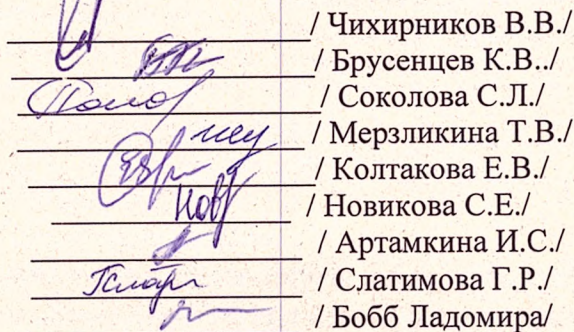 / Чихирников В.В./
/ Брусенцев К.В../
/ Соколова С.Л./
/ Мерзликина Т.В./
/ Колтакова Е.В./
Нов / Новикова С.Е./
/ Артамкина И.С./
/ Слатимова Г.Р./
/ Бобб Ладомира/